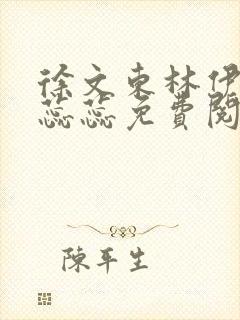 徐文東林伊
蕊蕊免費閱
陳平生